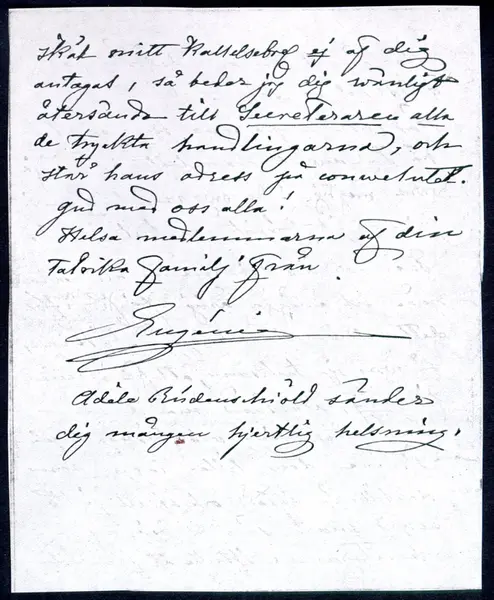 skäl mitt Kallelsebref ej af dig
antagas, så beder jag dig vänligt
återsända till Secreteraren alla
de tryckta handlingarna, och
står hans adress på convolutet.
Gud med oss alla!
Helsa medlemmarna af din
talrika familj från
Eugénie
Adèle Rudenschiöld sänder
dig mången hjertlig helsning.